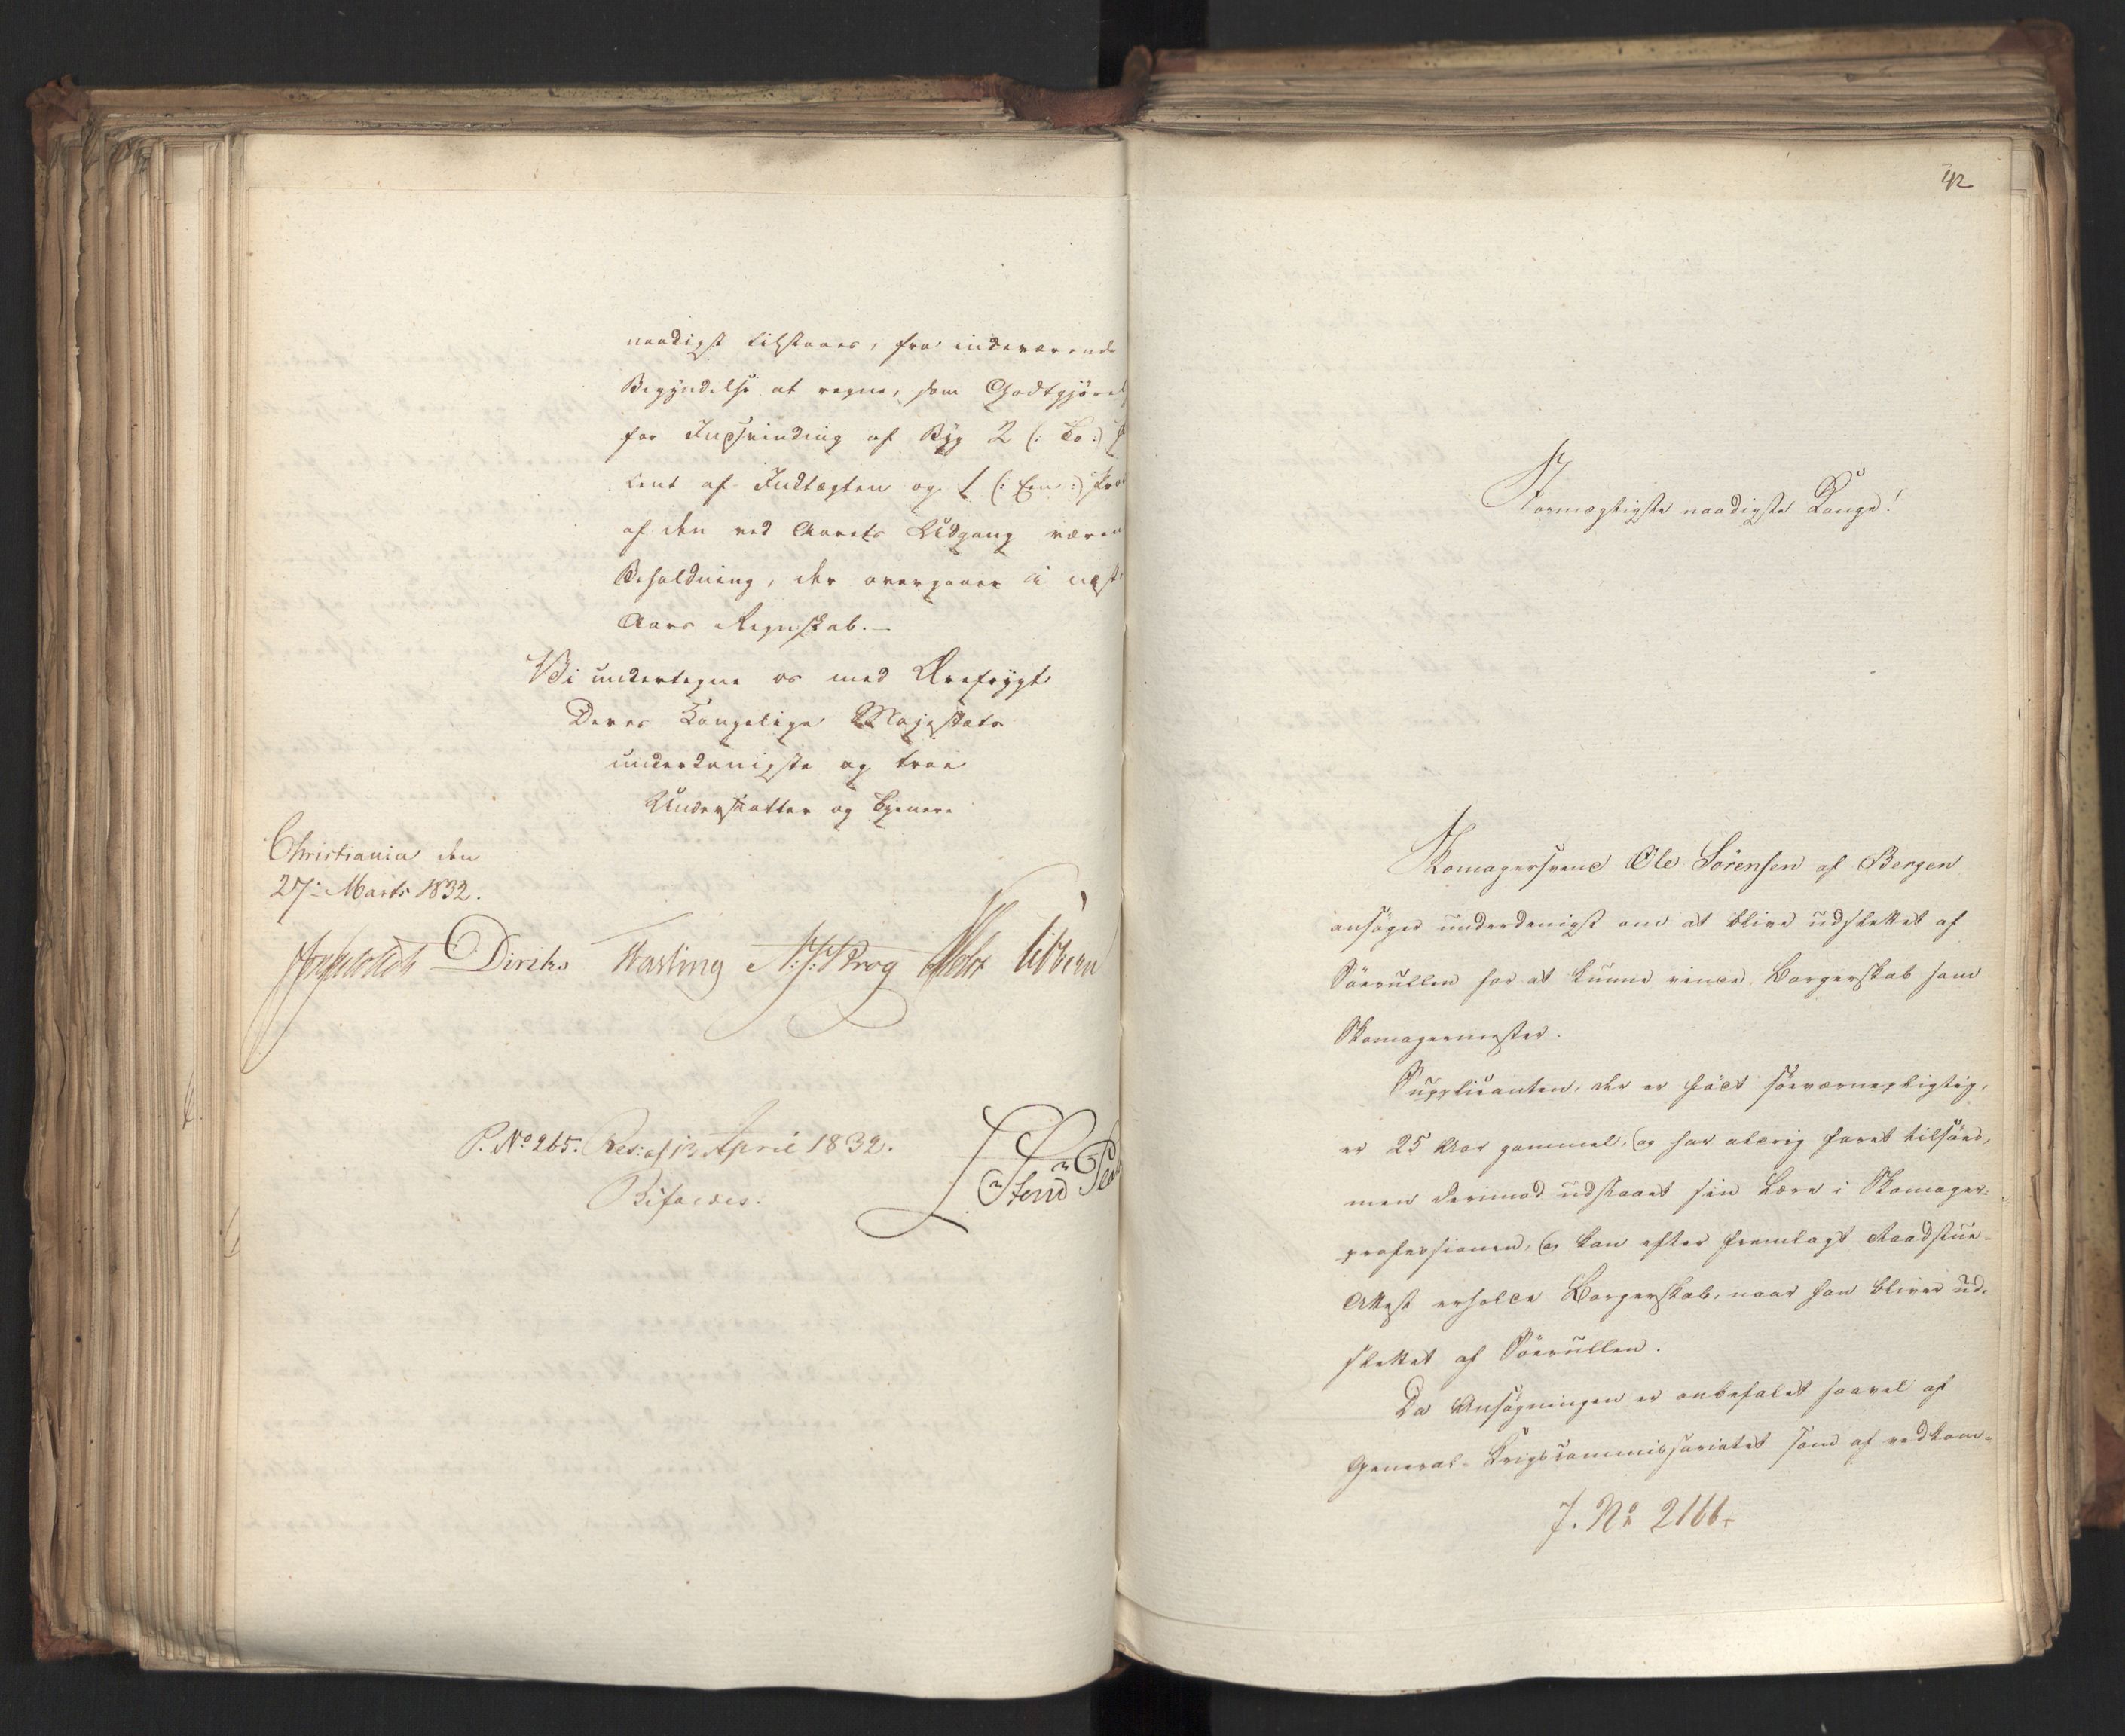 naadigst tilstaaes, fra indeværende
Begyndelse at regne, som Godtgjørel
for Indvinding af Byg 2 (: To :) p
Cent af Indtægten og 1 (: Een :) pro
af den ved Aarets Udgang været
Beholdning, der overgaaer i næste
Aars Regnskab.—
Vi undertegne os med Ærefrygt
Deres Kongelige Majestæts
underdanigste og troe
Undersaatter og tjenere
Christiania den
27: Marts 1832.
Diriks Fasting N: J: Krog Motzfeldt Sibbern
P. No 265. Res: af 13 April 1832.
Bifaldes.
42
Stormægtigste naadigste Konge!
Skomagersvend Ole Sörensen af Bergen
ansöger underdanigst om at blive udslettet af
Söerullen for at kunne vinde Borgerskab som
Skomagermester.
Supplicanten, der er föd söeværnepligtig,
er 25 Aar gammel, og har aldrig faret tilsöes,
men derimod udstaaet sin Lære i Skomager-
professionen, og kan efter fremlagt Raadstue-
Attest erholde Borgerskab, naar han bliver ud-
slettet af Söerullen.
Da Ansögningen er anbefalet saavel af
General-Krigscommissariatet som af vedkom-
J. No 2166.